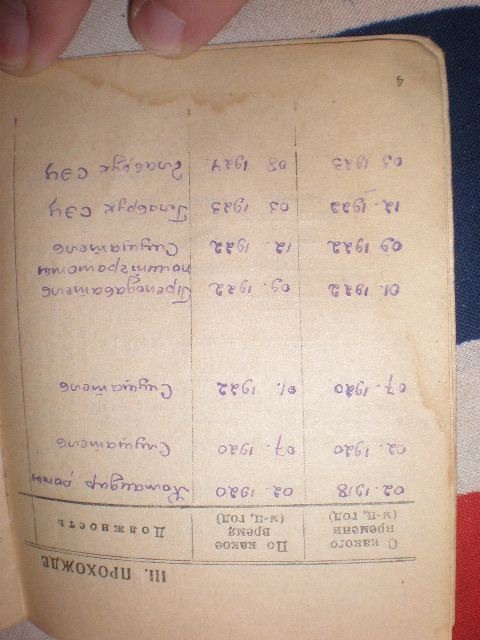 III. ПРОХОЖДЕ
С какого времени (м-ц, год) По какое время (м-ц, год) Должность
02.1918 02.1920 Командир роты
02.1920 07.1920 Слушатель
07.1920 01.1922 Слушатель
01.1922 09.1922 Преподаватель
политграмоты
09.1922 12.1922 Слушатель
12.1922 03.1923 Главрук СЭЧ
03.1923 08.1924 Главрук СЭЧ
4